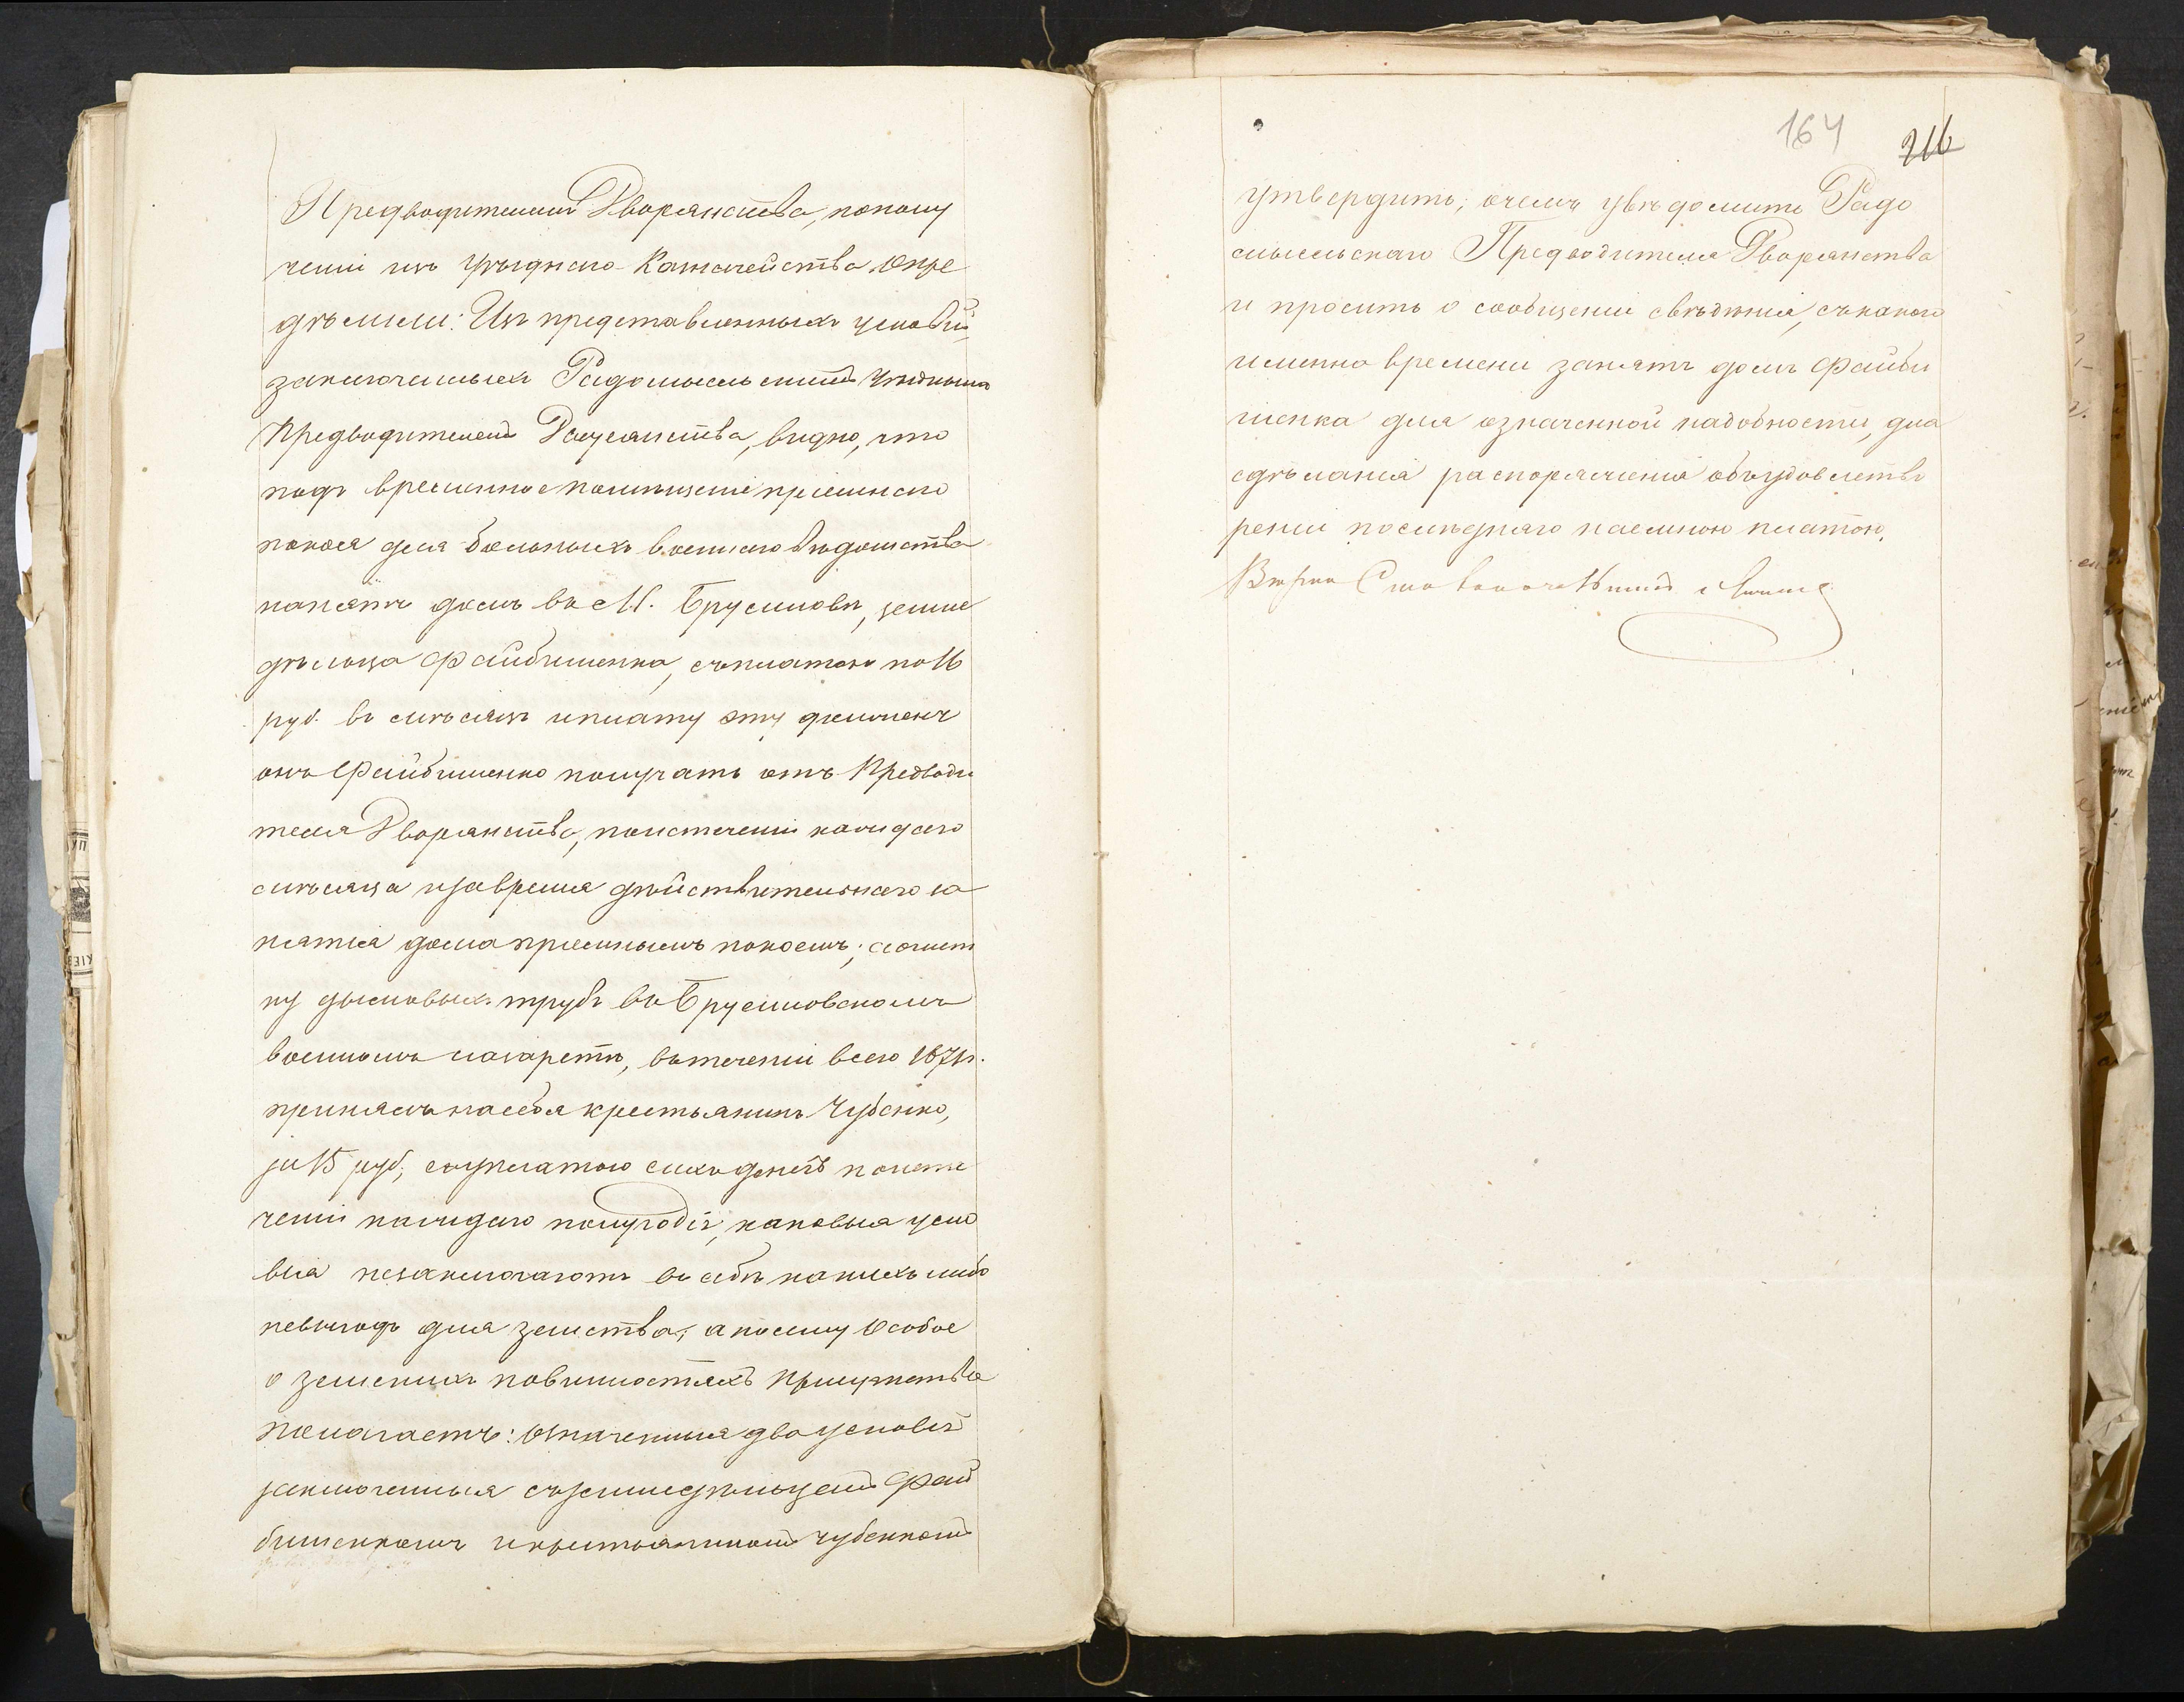 Предводителемъ Дворянства, по полу
ченіи изъ уѣзднаго Казначейства Опре
дѣлили: Изъ представленныхъ условій,
заключенныхъ Радомысльскимъ Уѣзднымъ
Предводителемъ Дворянства, видно, что
подъ временное помѣщеніе пріемнаго
покоя для больныхъ военнаго вѣдомства
нанятъ домъ въ М. Брусиловѣ, земле
дѣльца Файбишенка, съ платою по 16
руб. въ мѣсяцъ и плату эту долженъ
онъ Файбишенко получать отъ Предводи
теля Дворянства, по истеченіи каждаго
мѣсяца и за время дѣйствительнаго за
нятія дома пріемнымъ покоемъ; а очист
ку дымовыхъ трубъ въ Брусиловскомъ
военномъ лазаретѣ, въ теченіи всего 1871 г.
принялъ на себя крестьянинъ Чубенко,
за 15 руб; съ уплатою сихъ денегъ по исте
ченіи каждаго полугодія, каковыя усло
вія не заключаютъ въ себѣ какихъ либо
невыгодъ для земства, а посему Особое
о земскихъ повинностяхъ Присутствіе
полагаетъ: означенныя два условія
заключенныя съ земледѣльцемъ Фай
бишенкомъ и крестьяниномъ Чубенкомъ
164 216
утвердить; о чемъ увѣдомить Радо
мысльскаго Предводителя Дворянства
и просить о сообщеніи свѣдѣнія, съ какого
именно времени занятъ домъ Файби
шенка для означенной надобности, для
сдѣланія распоряженія объ удовлетво
реніи послѣдняго наемною платою.